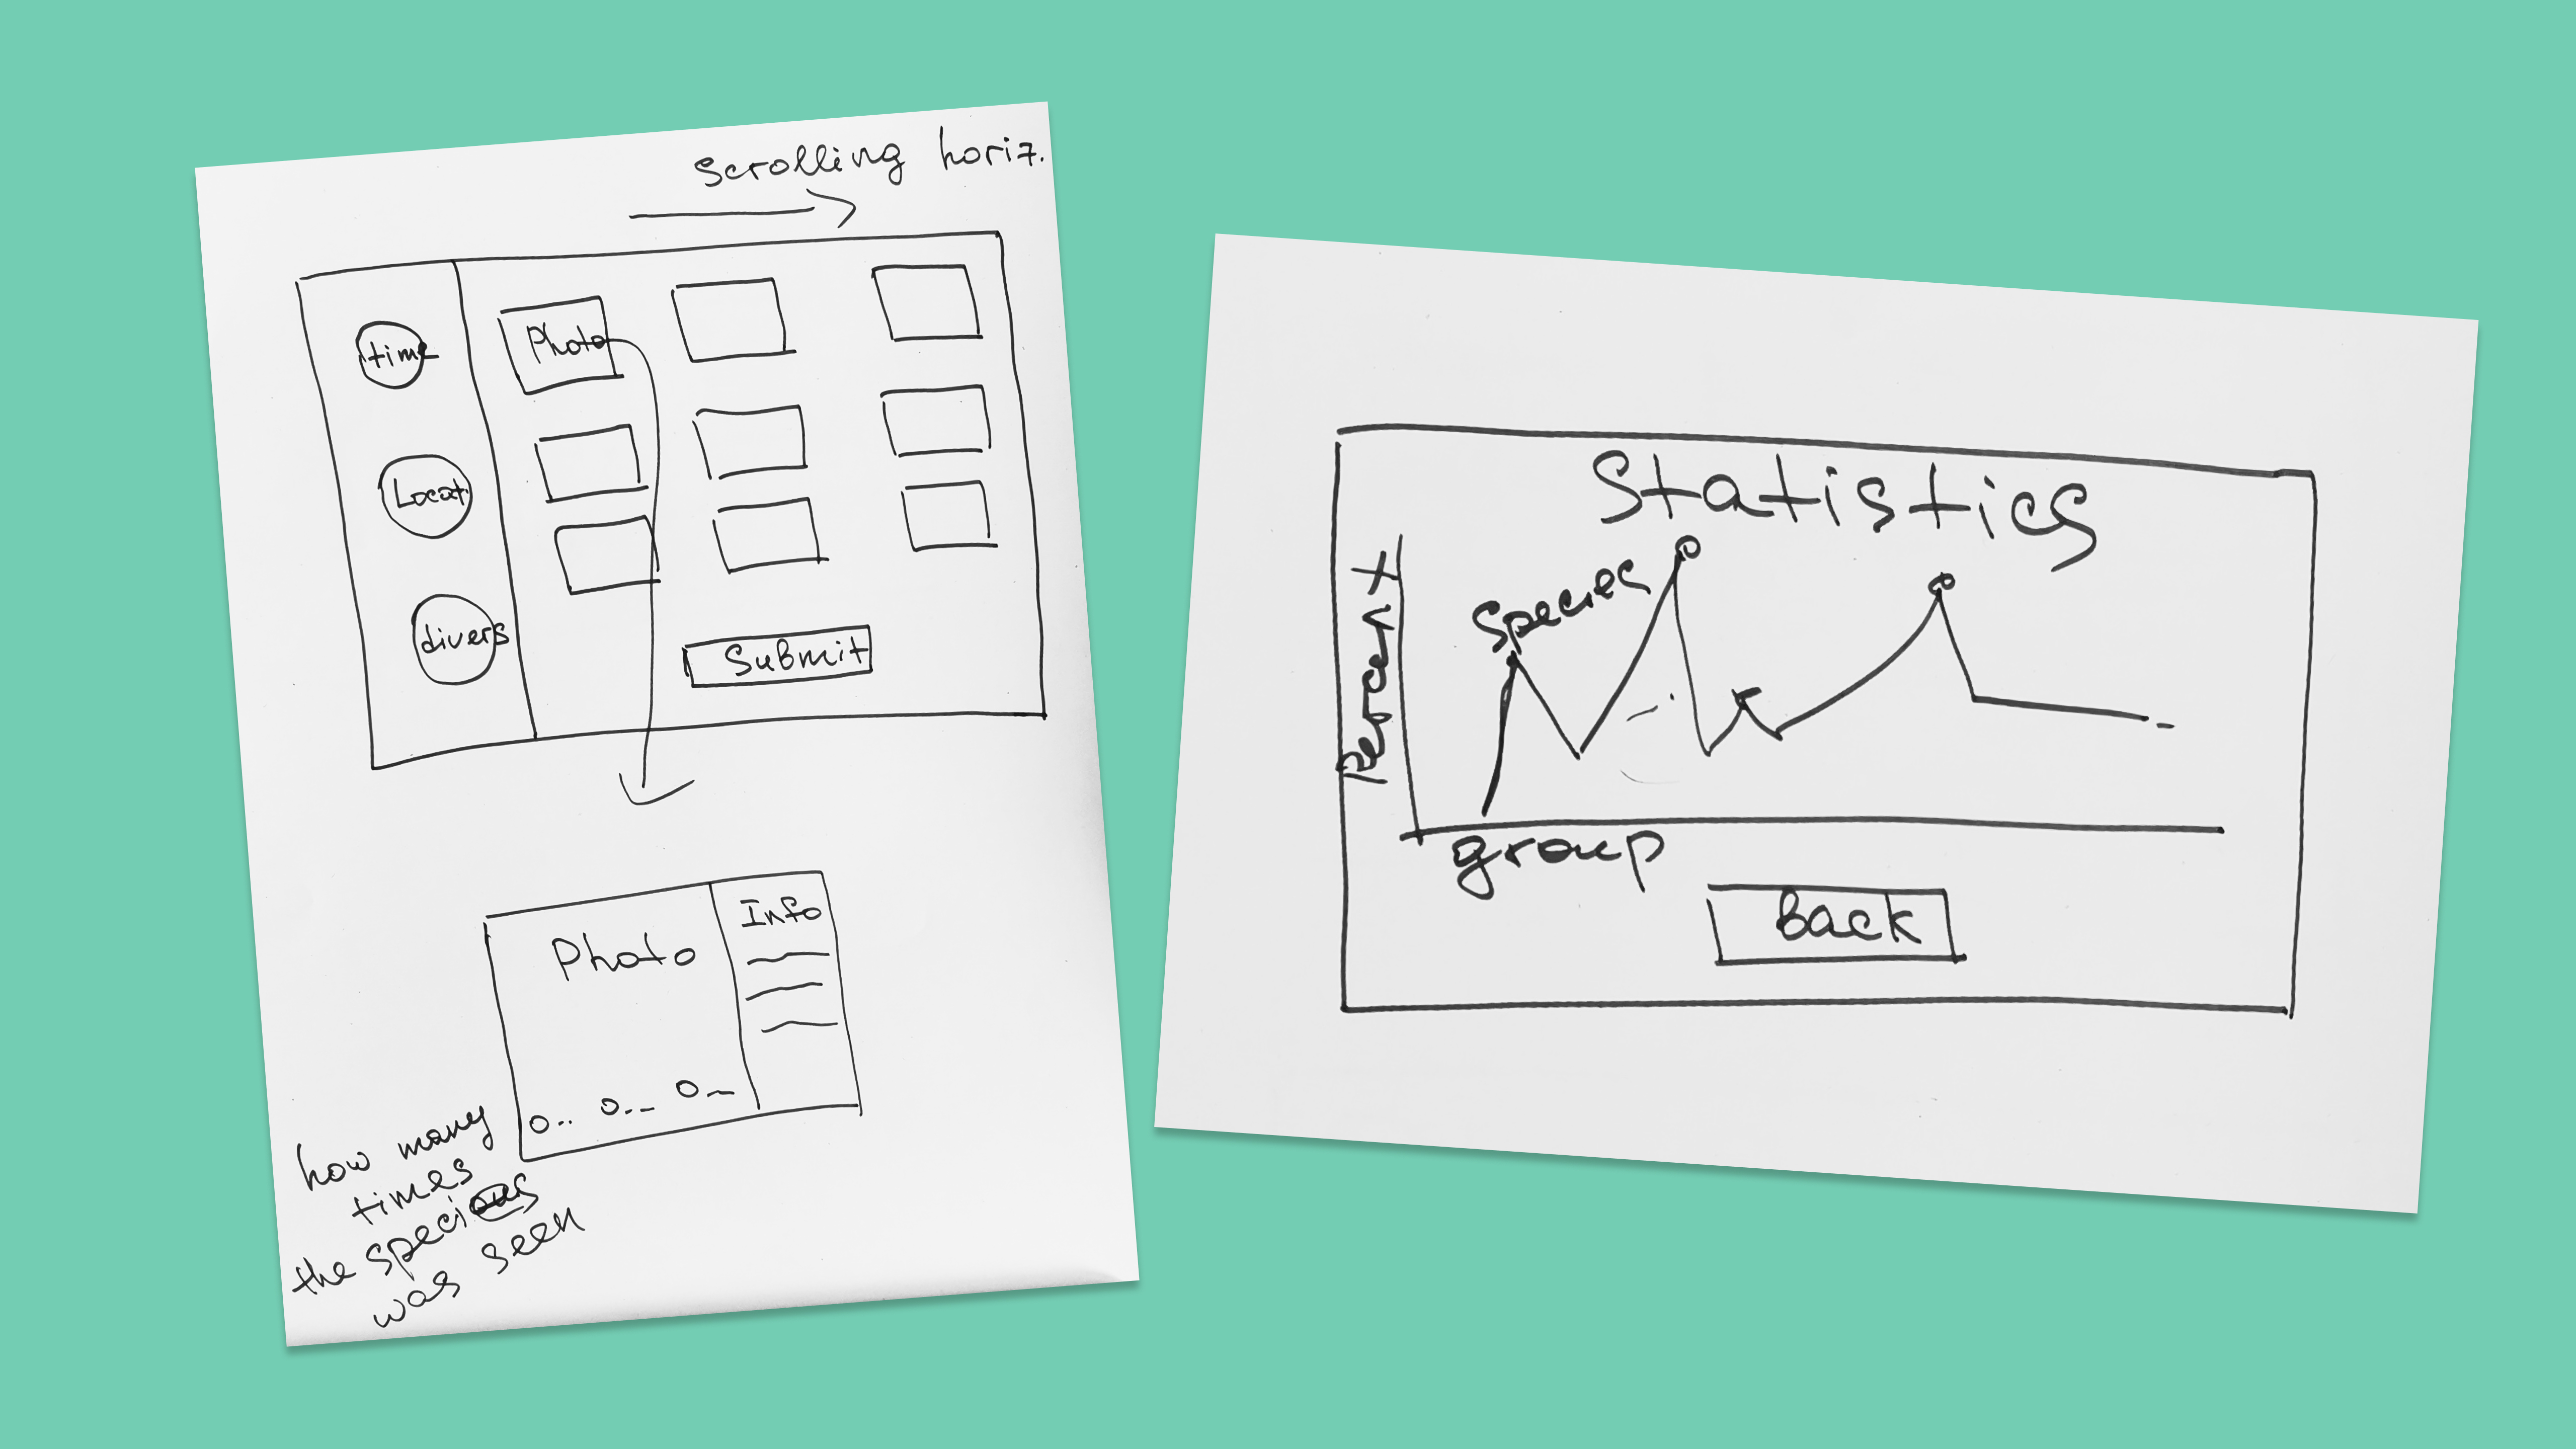 Scrolling horiz.
time
Photo
Locat
divers
Submit
Photo
Info
how many
times
the species
was seen
Statistics
Percent
Species
group
Back